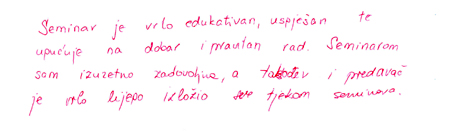 Seminar je vrlo edukativan, uspješan te
upućuje na dobar i pravilan rad. Seminarom
sam izuzetno zadovoljna, a također i predavač
je vrlo lijepo izložio sve tjekom seminara.